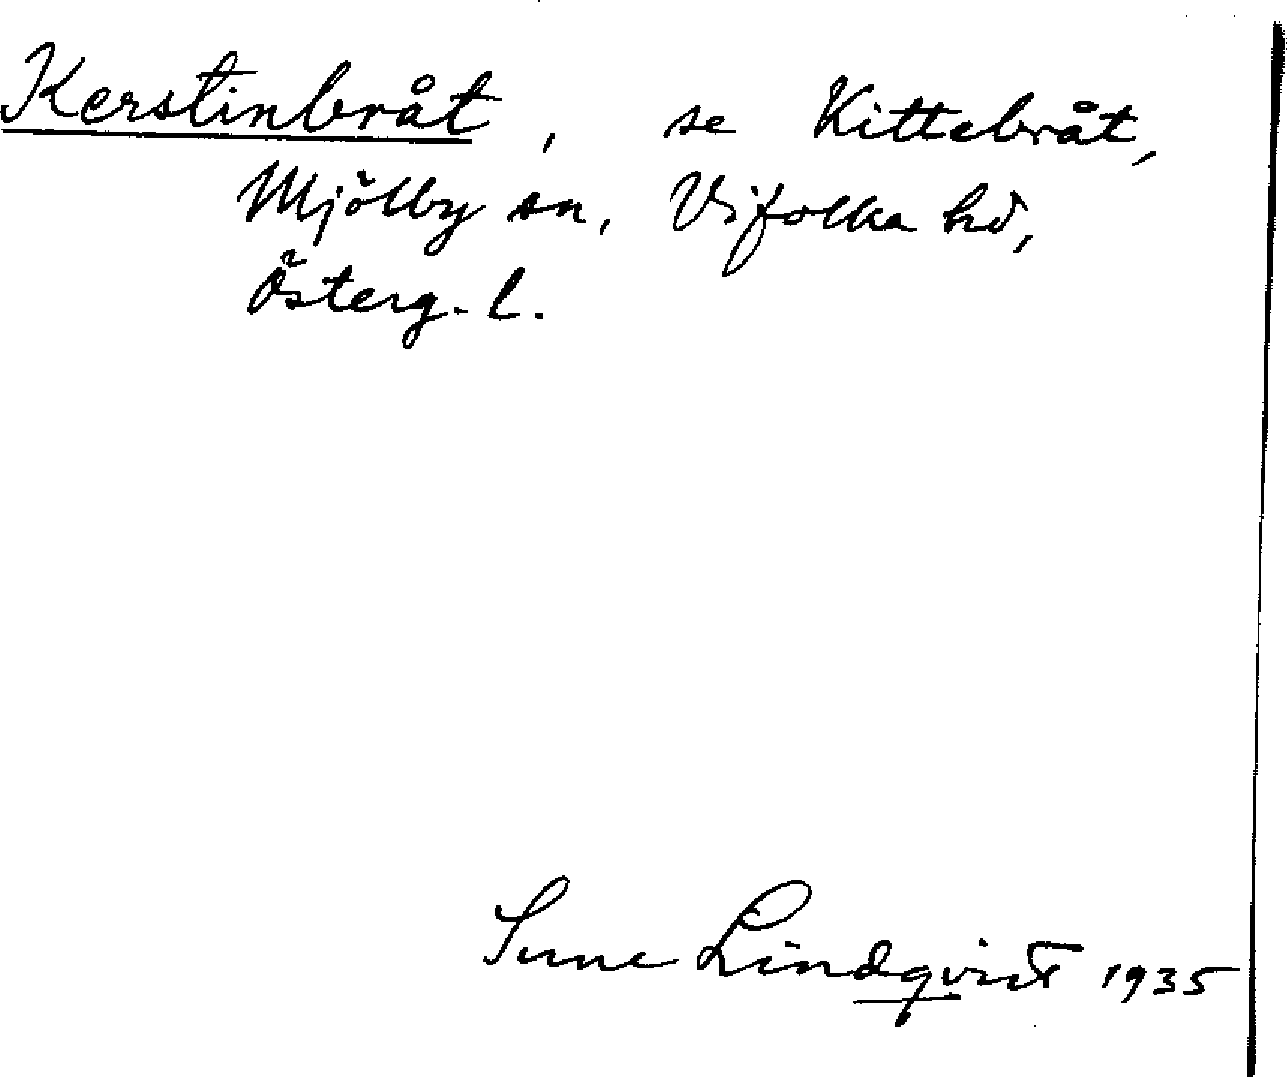 Kerstinbråt, se Kittebråt,
Mjölby sn, Vifolka hd,
Österg. l.
Sune Lindqvist 1935